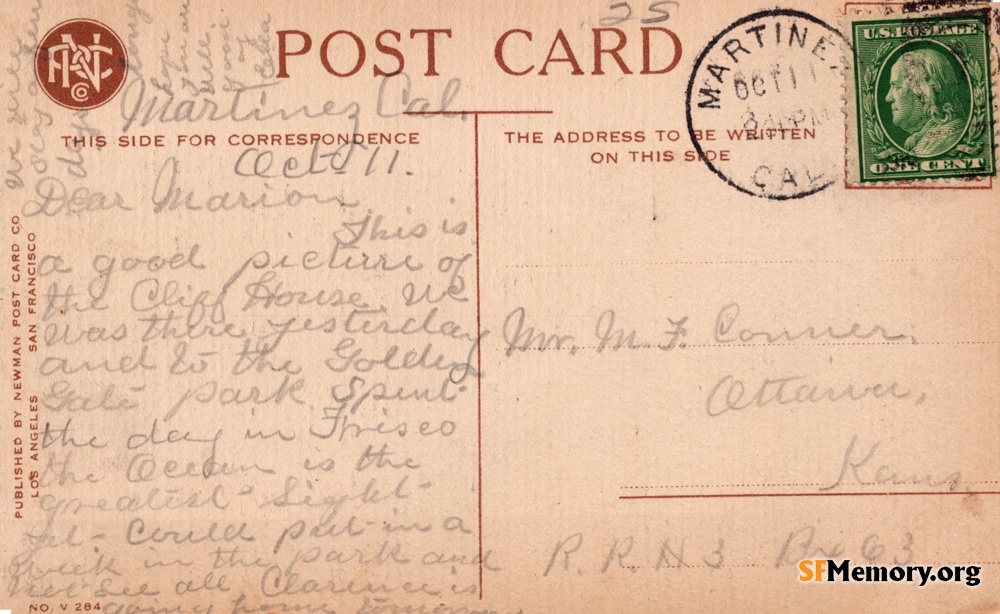 25
POST CARD
MARTINEZ
OCT 11
PM
CAL
U.S. POSTAGE
ONE CENT
Martinez Cal.
THIS SIDE FOR CORRESPONDENCE
THE ADDRESS TO BE WRITTEN
ON THIS SIDE
Oct 11.
Dear Marion
This is
a good picture of
the Cliff House. We
was there yesterday
and to the Golden
Gate park Spent
the day in Frisco
the Ocean is the
greatest Sight
yet Could put in a
week in the park and
not See all Clarence is
going home tomorrow
We will
Mr. M. F. Conner.
Ottawa,
Kans.
R. R. N 3 Box 63
PUBLISHED BY NEWMAN POST CARD CO
LOS ANGELES SAN FRANCISCO
NO. V 284
CO
SFMemory.org